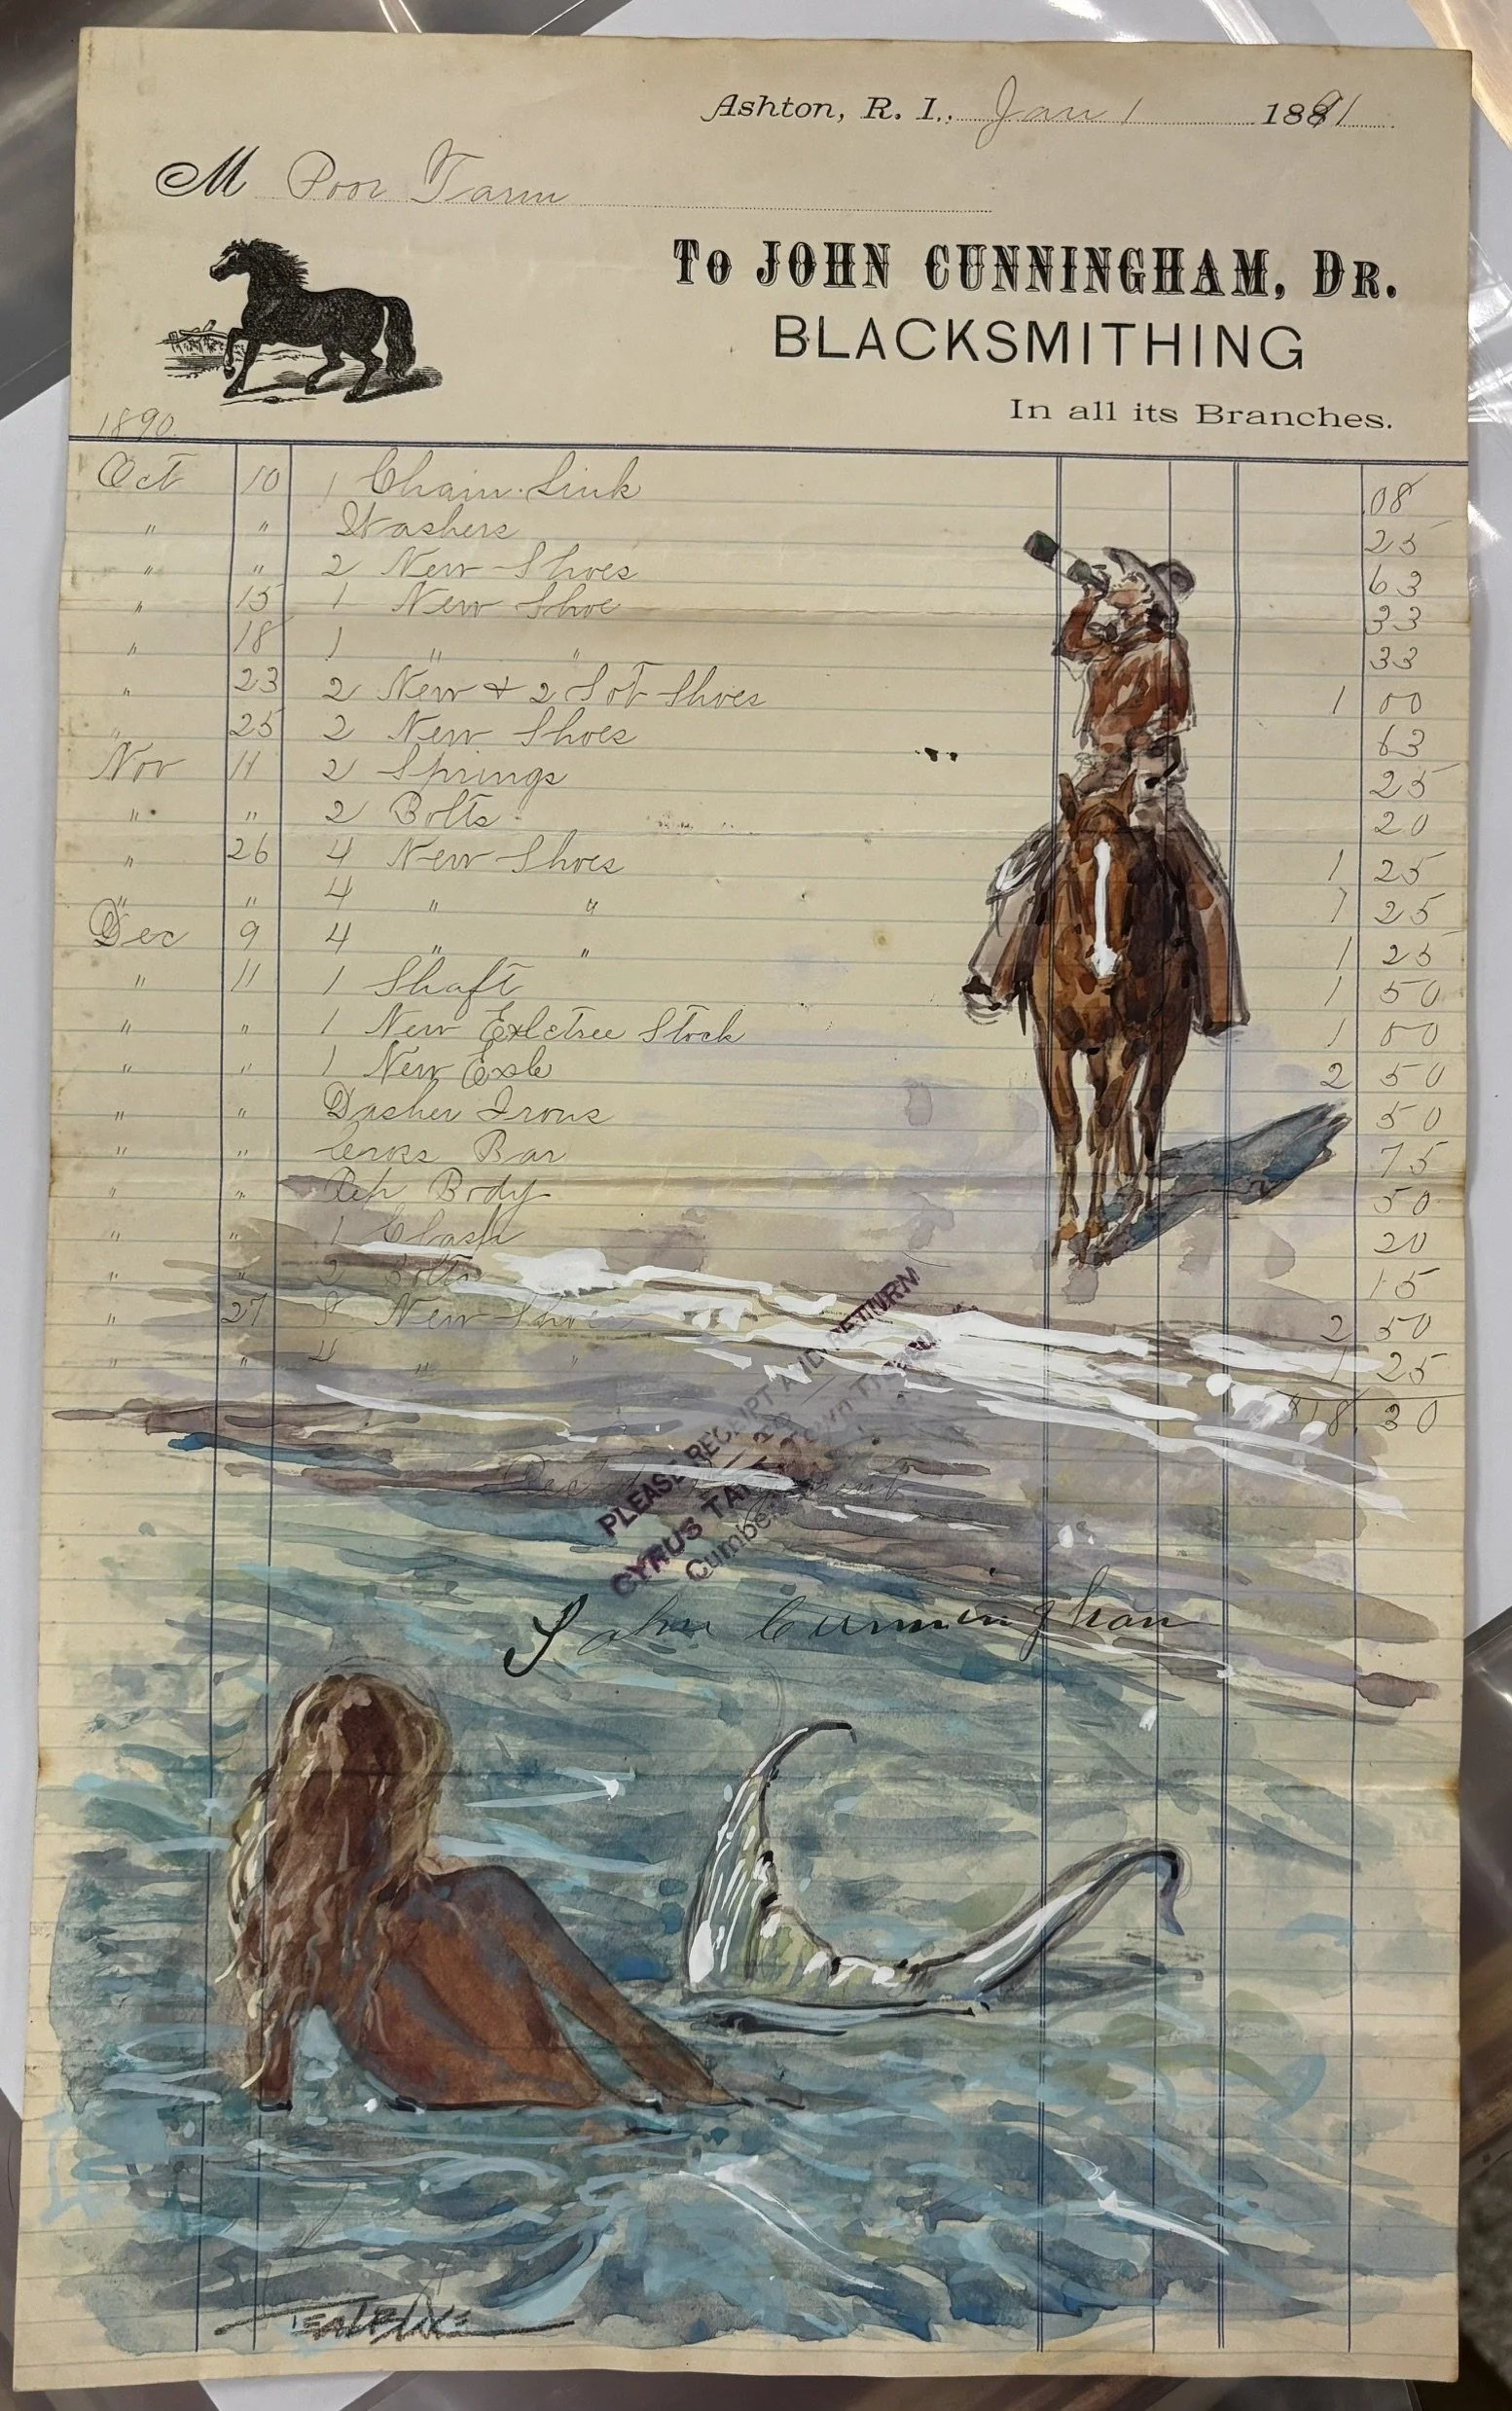 Ashton, R. I., Jan 1 1891
M Poor Farm
To JOHN CUNNINGHAM, DR.
BLACKSMITHING
In all its Branches.
1890.
Oct 10 1 Chain Link 08
" " Washers 25
" " 2 New Shoes 63
" 15 1 New Shoe 33
" 18 1 " " 33
" 23 2 New & 2 Sot Shoes 1 00
" 25 2 New Shoes 63
Nov 11 2 Springs 25
" " 2 Bolts 20
" 26 4 New Shoes 1 25
" " 4 " " 1 25
Dec 9 4 " " 1 25
" 11 1 Shaft 1 50
" " 1 New Exletree Stock 1 00
" " 1 New Exle 2 50
" " Dasher Irons 50
" " Cross Bar 75
" " Rep Body 50
" " 1 Clasp 20
" " 2 Bolts 15
" 27 8 New Shoes 2 50
" " 4 " " 1 25
$18.30
PLEASE RECEIPT AND RETURN
CYRUS TAFT
John Cunningham